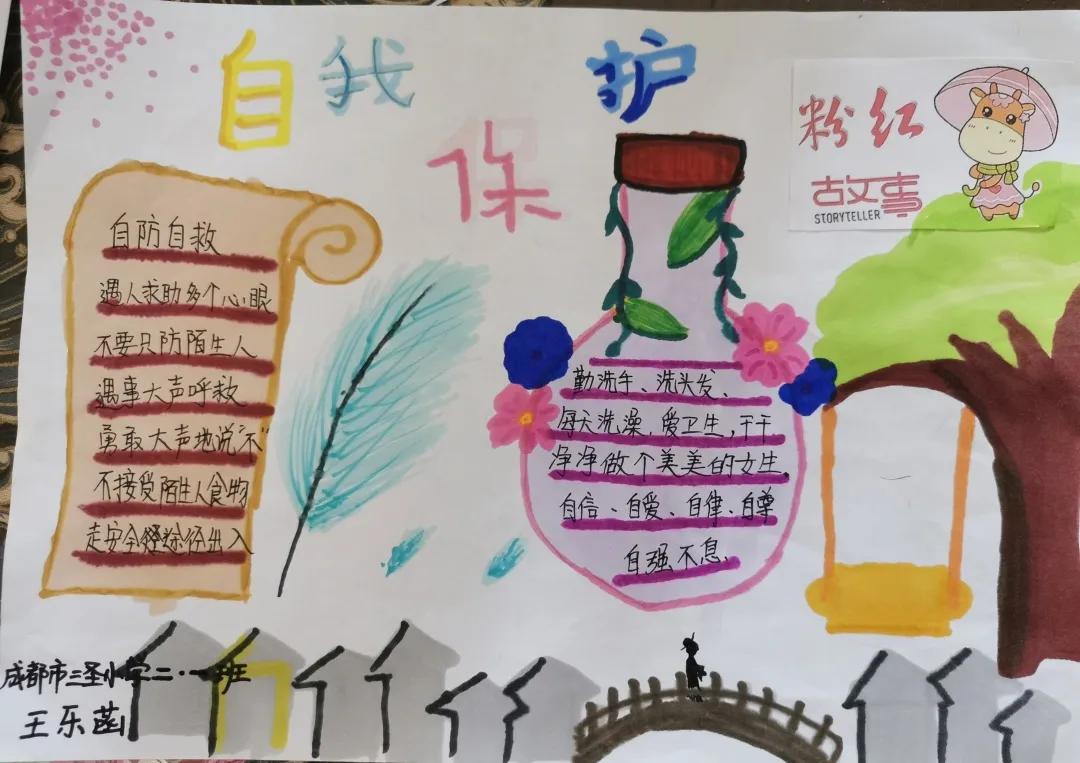 自我保护
粉红
故事
STORYTELLER
自防自救
遇人求助多个心眼
不要只防陌生人
遇事大声呼救
勇敢大声地说“不”
不接受陌生人食物
走安全途径出入
勤洗手、洗头发、
每天洗澡、爱卫生,干干
净净做个美美的女生。
自信、自爱、自律、自尊
自强不息.
成都市三圣小学二·一班
王乐菡